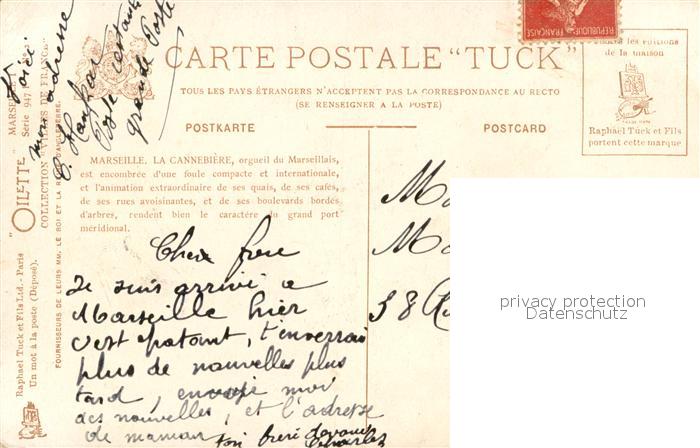 CARTE POSTALE "TUCK"
TOUS LES PAYS ÉTRANGERS N'ACCEPTENT PAS LA CORRESPONDANCE AU RECTO
(SE RENSEIGNER A LA POSTE)
POSTKARTE
POSTCARD
RÉPUBLIQUE FRANÇAISE
les éditions
de la maison
Raphaël Tuck et Fils
portent cette marque
Voici
mon adresse
Poste restante
grande Poste
"OILETTE"
Série 947
COLLECTION
FOURNISSEURS DE LEURS MM. LE ROI ET LA
Raphaël Tuck et Fils Ltd.-Paris
Un mot à la poste (Déposé).
MARSEILLE. LA CANNEBIÈRE, orgueil du Marseillais,
est encombrée d'une foule compacte et internationale,
et l'animation extraordinaire de ses quais, de ses cafés,
de ses rues avoisinantes, et de ses boulevards bordés
d'arbres, rendent bien le caractère du grand port
méridional.
Cher frere
Je suis arrivé a
Marseille hier
c'est épatant, t'enverrais
plus de nouvelles plus
tard, envoie moi
des nouvelles, et l'adresse
de maman
ton frère
38
privacy protection
Datenschutz